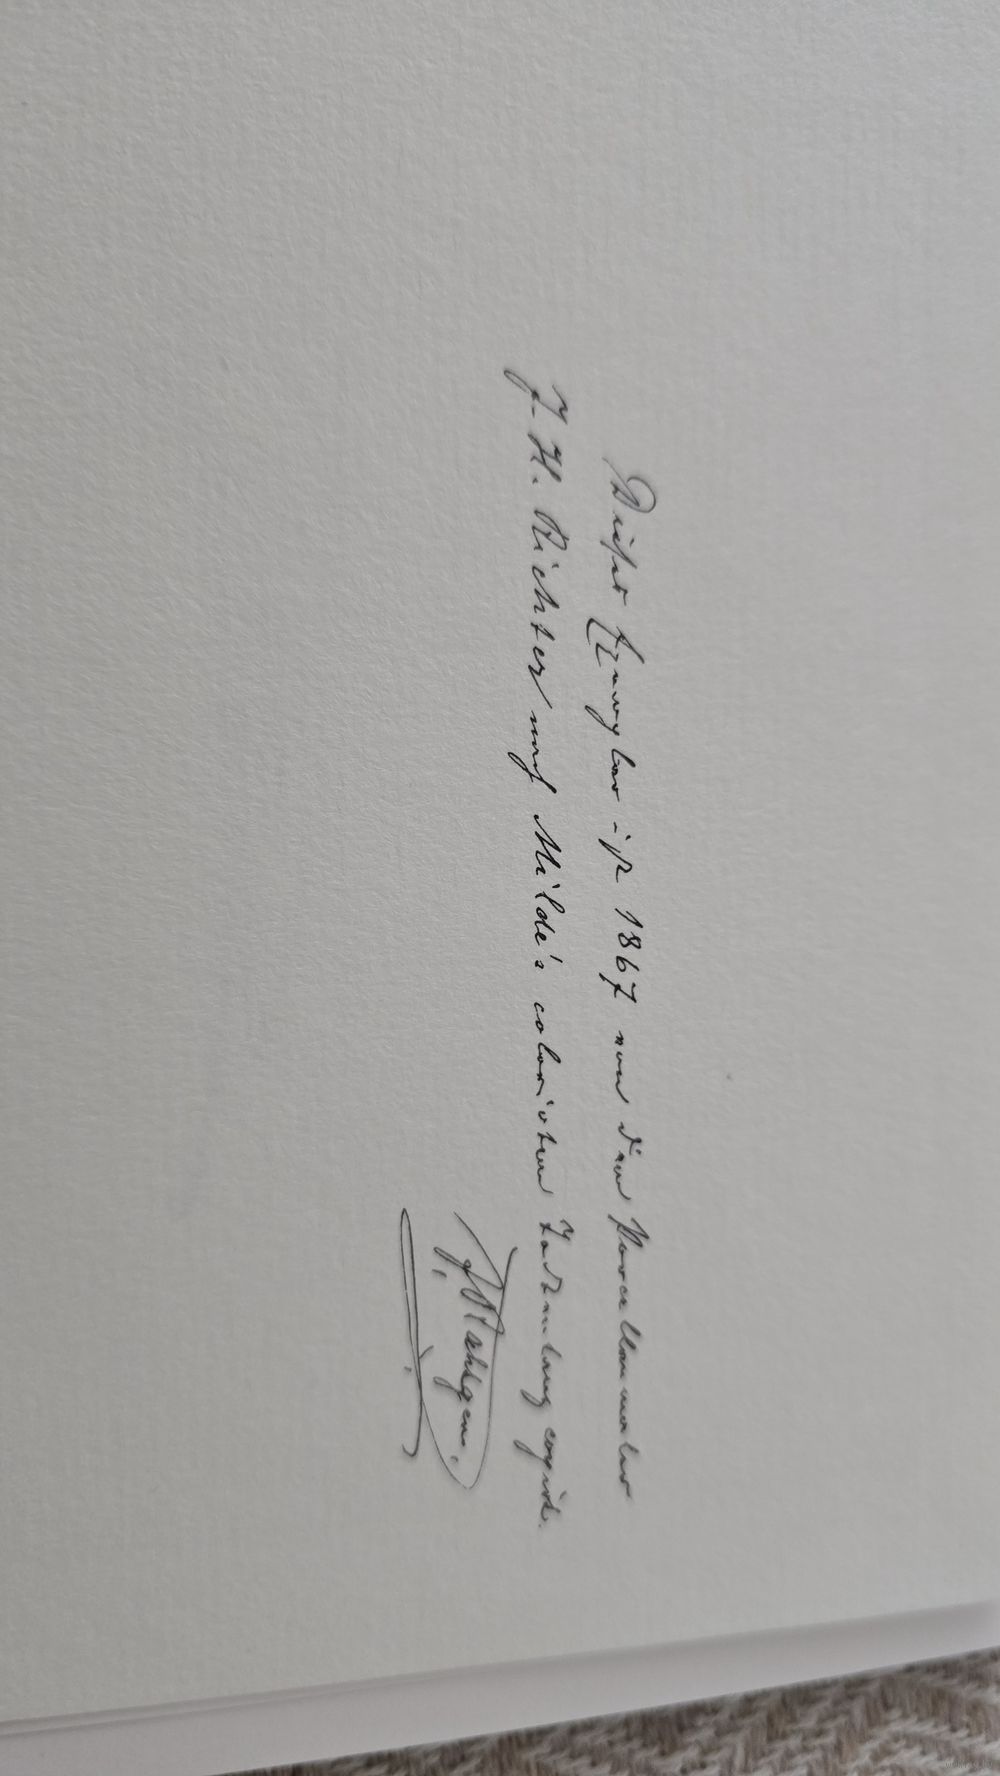 Dieser Exemplar ist 1867 von dem Porcellanmaler
J. H. Richter nach Milde's colorirten Zeichnung copirt.